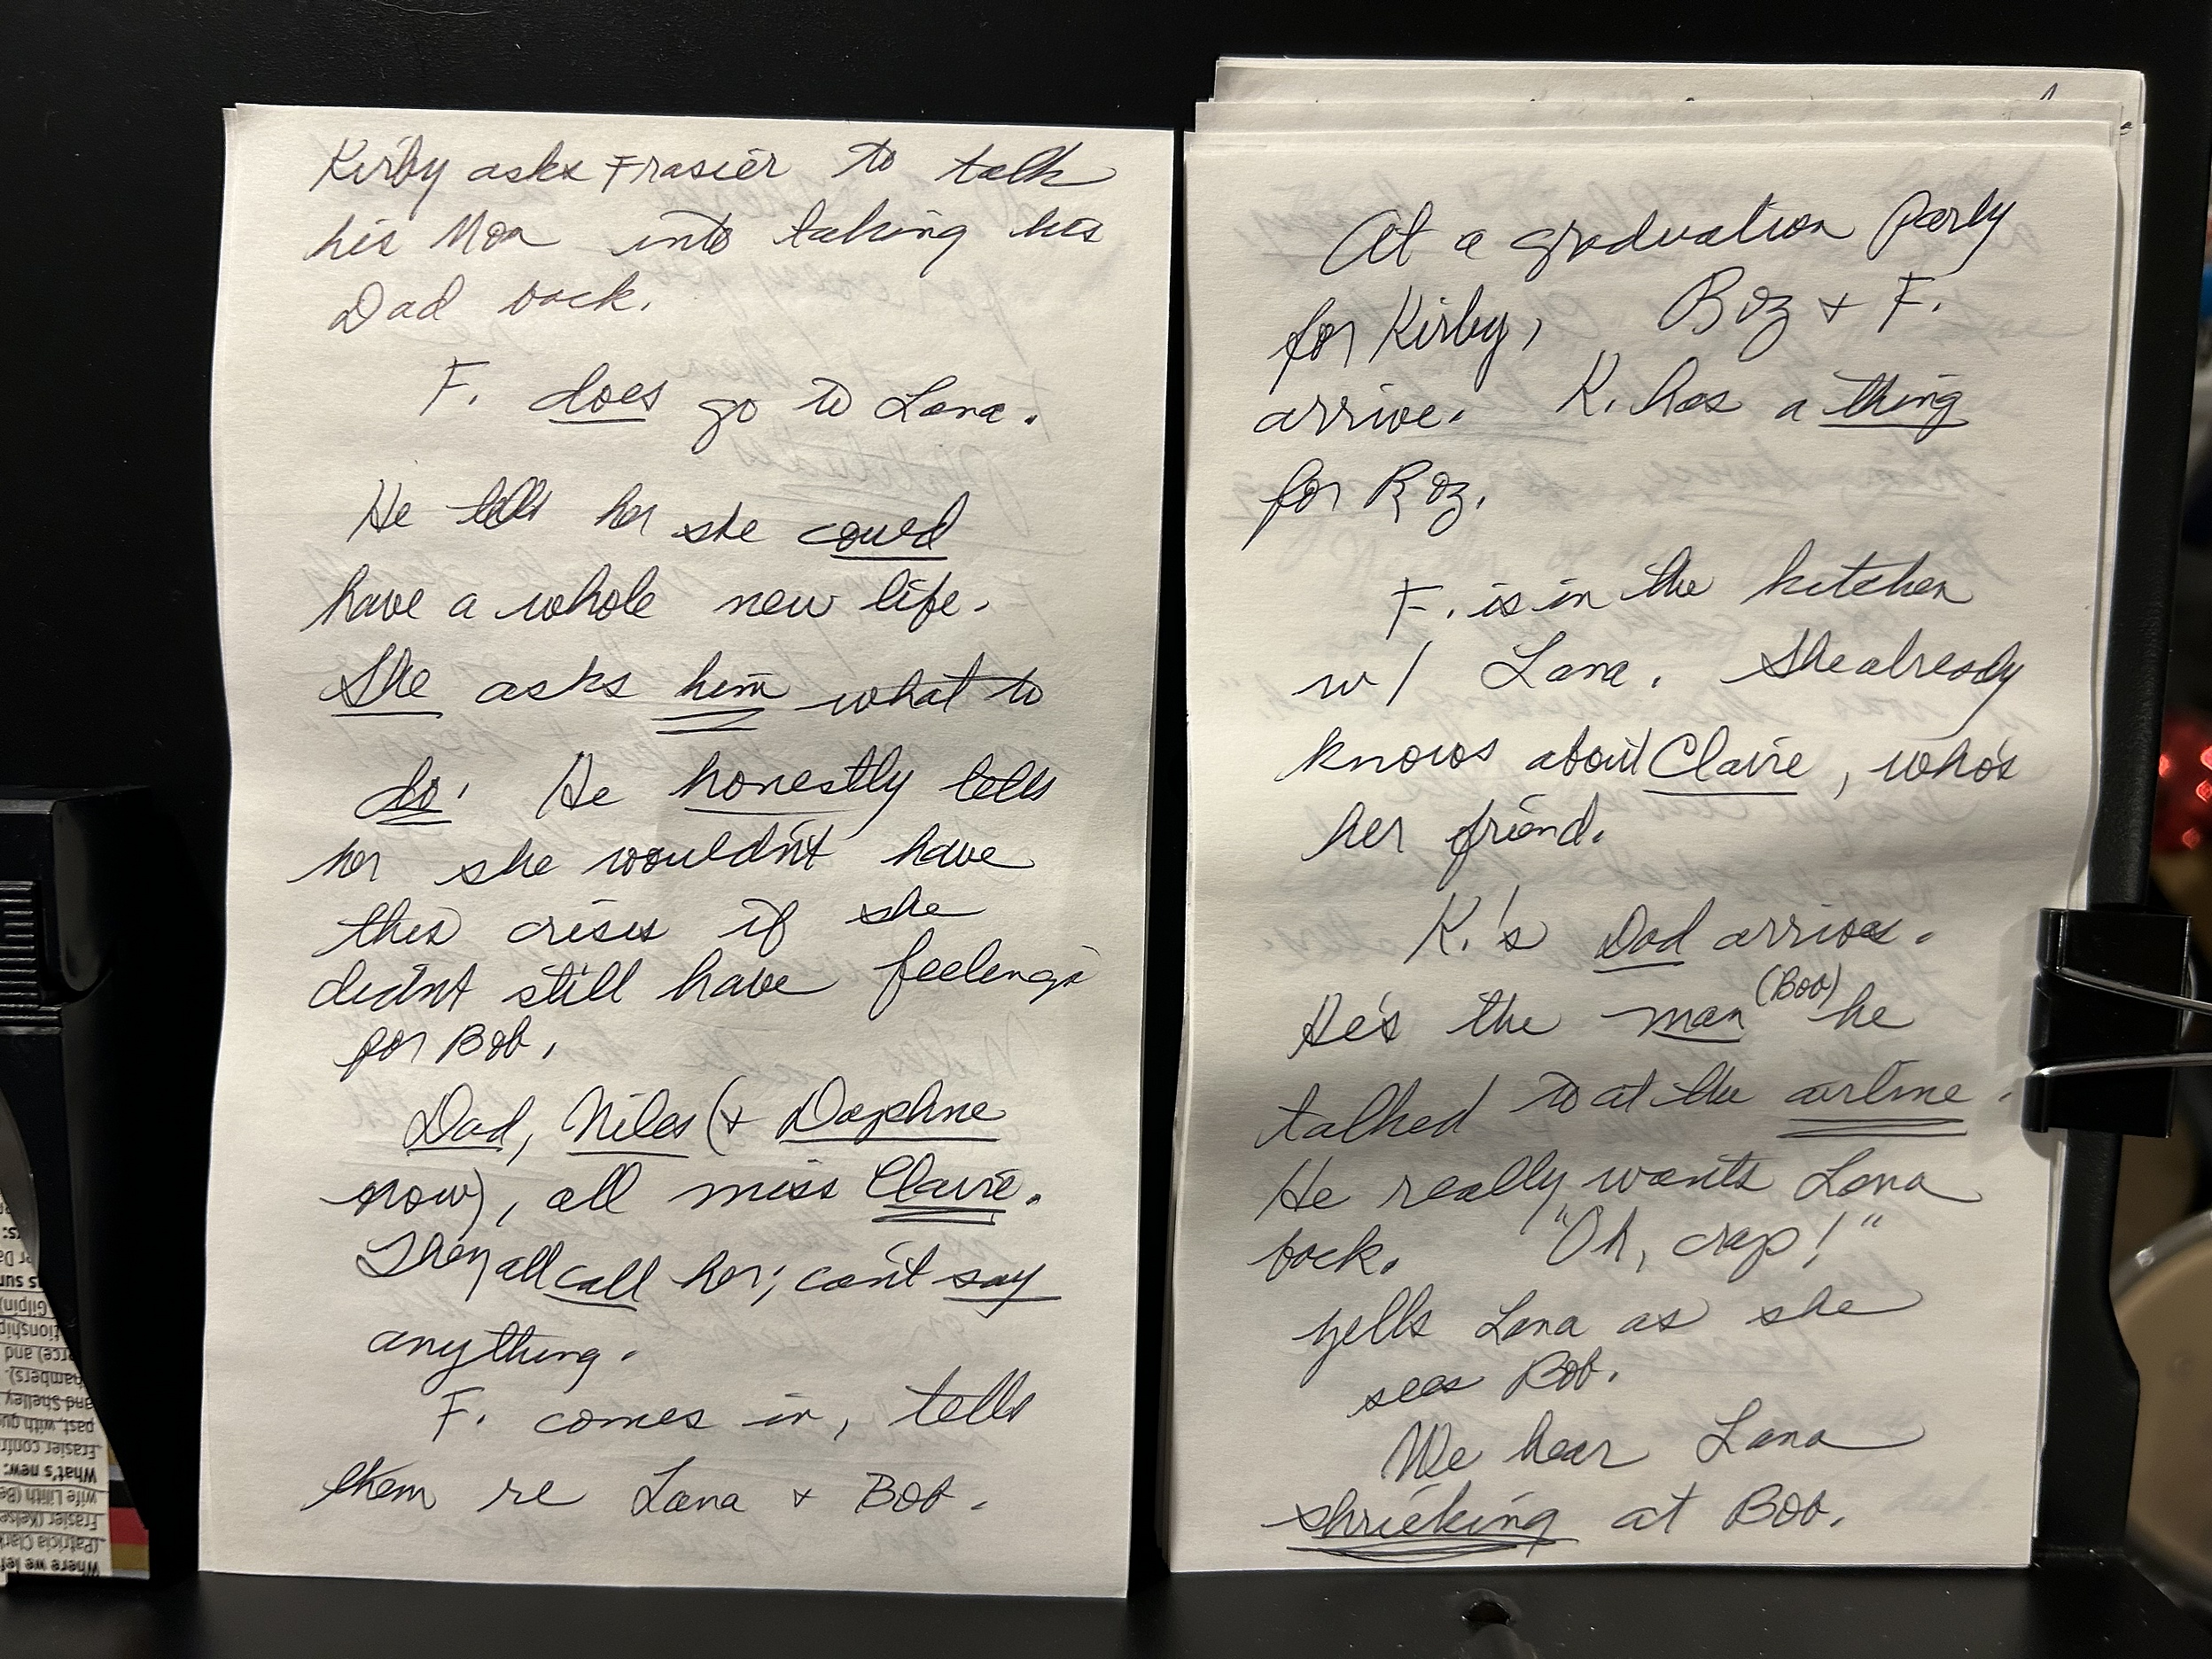 Kirby asks Frasier to talk
his Mom into taking his
Dad back.
F. does go to Lana.
He tells her she could
have a whole new life.
She asks him what to
do! He honestly tells
her she wouldn't have
this crisis if she
didn't still have feelings
for Bob.
Dad, Niles (+ Daphne
now), all miss Claire.
They all call her; can't say
anything.
F. comes in, tells
them re Lana + Bob.
At a graduation party
for Kirby, Roz + F.
arrive. K. has a thing
for Roz.
F. is in the kitchen
w/ Lana. She already
knows about Claire, who's
her friend.
K.'s Dad arrives.
He's the man (Bob) he
talked to at the airline.
He really wants Lana
back. "Oh, crap!"
yells Lana as she
sees Bob.
We hear Lana
shrieking at Bob.
Where we lef
(Patricia Clark
Frasier (Kelse
wife Lilith (Be
What's new:
Frasier confr
past, with gu
and Shelley
hambers).
rce) and
tionship
Gilpin)